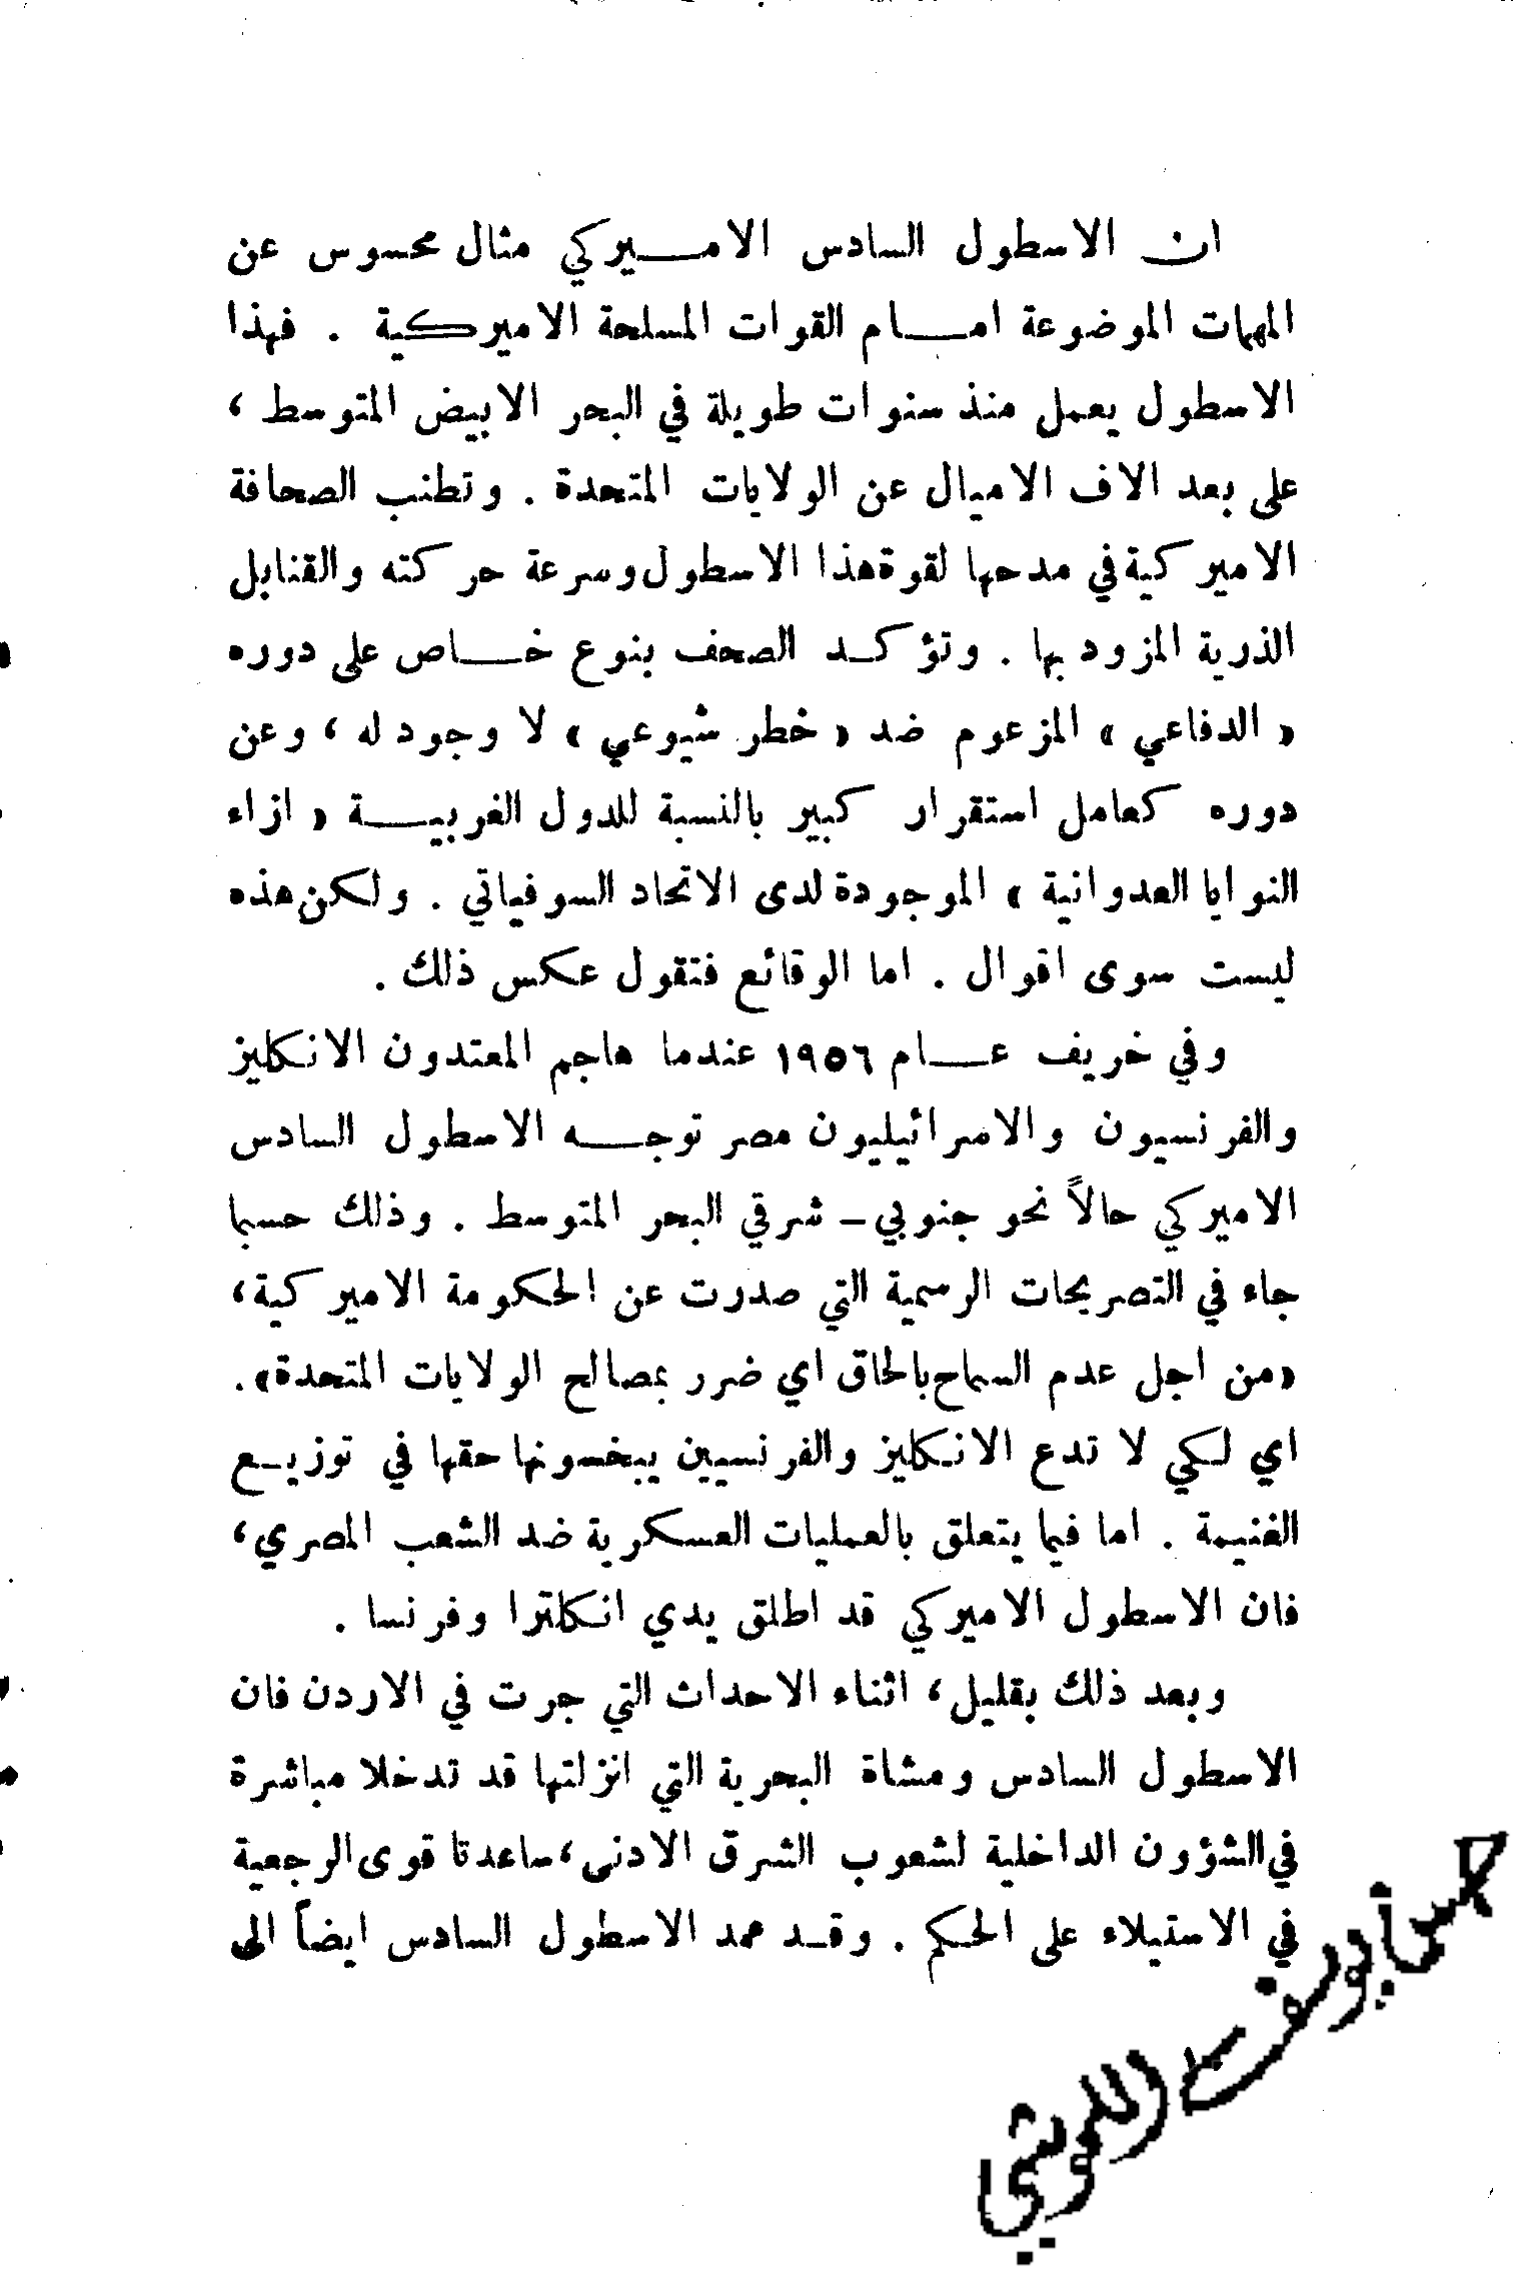 ان الاسطول السادس الاميركي مثال محسوس عن
المهمات الموضوعة امام القوات المسلحة الاميركية . فهذا
الاسطول يعمل منذ سنوات طويلة في البحر الابيض المتوسط ،
على بعد الاف الاميال عن الولايات المتحدة . وتطنب الصحافة
الاميركية في مدحها لقوة هذا الاسطول وسرعة حركته والقنابل
الذرية المزود بها . وتؤكد الصحف بنوع خاص على دوره
« الدفاعي » المزعوم ضد « خطر شيوعي » لا وجود له ، وعن
دوره كعامل استقرار كبير بالنسبة للدول الغربية « ازاء
النوايا العدوانية » الموجودة لدى الاتحاد السوفياتي . ولكن هذه
ليست سوى اقوال . اما الوقائع فتقول عكس ذلك .
وفي خريف عام ١٩٥٦ عندما هاجم المعتدون الانكليز
والفرنسيون والاسرائيليون مصر توجه الاسطول السادس
الاميركي حالاً نحو جنوبي – شرقي البحر المتوسط . وذلك حسبما
جاء في التصريحات الرسمية التي صدرت عن الحكومة الاميركية ،
«من اجل عدم السماح بالحاق اي ضرر بمصالح الولايات المتحدة» .
اي لكي لا تدع الانكليز والفرنسيين يبخسونها حقها في توزيع
الغنيمة . اما فيما يتعلق بالعمليات العسكرية ضد الشعب المصري ،
فان الاسطول الاميركي قد اطلق يدي انكلترا وفرنسا .
وبعد ذلك بقليل ، اثناء الاحداث التي جرت في الاردن فان
الاسطول السادس ومشاة البحرية التي انزلتها قد تدخلا مباشرة
في الشؤون الداخلية لشعوب الشرق الادنى ، ساعدتا قوى الرجعية
في الاستيلاء على الحكم . وقد عمد الاسطول السادس ايضاً الى